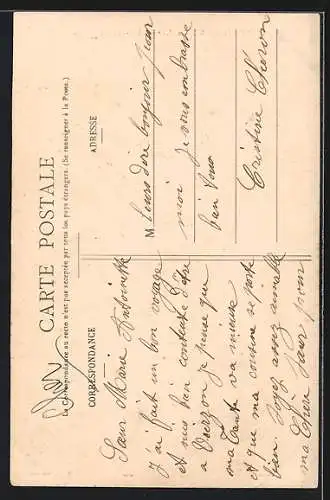 CARTE POSTALE
La Correspondance au recto n'est pas acceptée par tous les pays étrangers. (Se renseigner à la Poste.)
CORRESPONDANCE
ADRESSE
Sœur Marie Antoinette
J'ai fait un bon voyage
et suis bien contente d'être
a Vierzon je pense que
ma Tante va mieux
et que ma cousine se porte
bien. Soyez assez aimable
ma Chère Sœur pour
M leurs dire bonjour pour
moi je vous embrasse
bien tous
Cristine